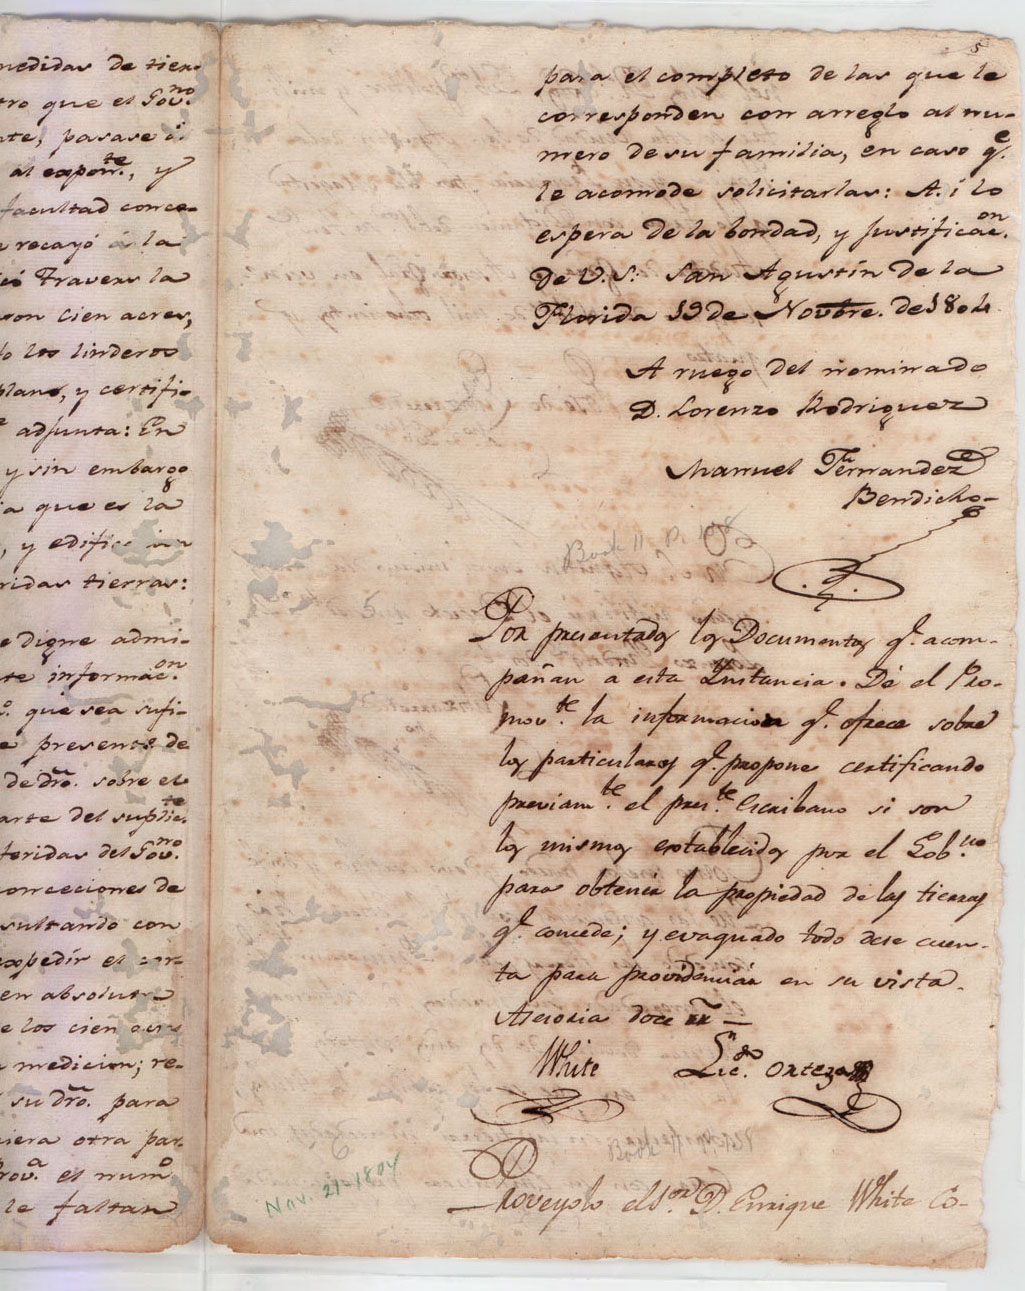 medidas de tier-
tro que el Gov.no
nte, pasase á
al expon.te, y
facultad conce-
n recayó á la
ció Travers la
con cien acres,
do los linderos
plano, y certifi-
adjunta: En
y sin embargo
ia que es la
, y edific
ridas tierras:
e digne admi-
te informac.on
que sea sufi-
e presente de
de dro. sobre el
arte del suplic.te
feridas del Gov.no
concesiones de
sultando con
expedir el cor-
en absoluta
e los cien acres
medicion; re-
su dro. para
iera otra par-
Prov.a el num.o
le faltan
5
para el completo de las que le
corresponden con arreglo al nu-
mero de su familia, en caso q.e
le acomode solicitarlas: A.i lo
espera de la bondad, y justificac.on
de V.S. San Agustín de la
Florida 19 de Novbre. de 1804.
A ruego del nominado
D. Lorenzo Rodriguez
Manuel Fernandez
Bendicho-
Book 11 P.
Por presentados los Documentos q.e acom-
pañan a esta Ynstancia. Dé el Pro-
mov.te la informacion q.e ofrece sobre
los particulares q.e propone certificando
previam.te el pres.te Escribano si son
los mismos establecidos por el Gob.no
para obtener la propiedad de las tierras
q.e concede; y evaquado todo dese cuen-
ta para providenciar en su vista.
Asesoria doce rr
White Lic.do Ortega
Book 11 P.
Nov. 21-1804
Proveyolo el S.or D. Enrique White Co-